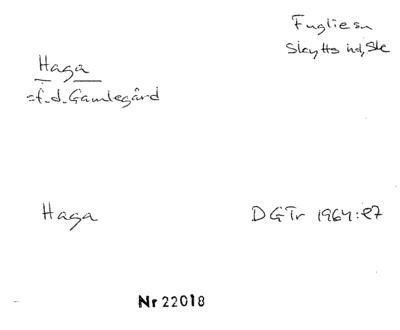 Fuglie sn
Skytts hd, Sk
Haga
=f.d. Gamlegård
Haga
DGTr 1964:27
Nr 22018